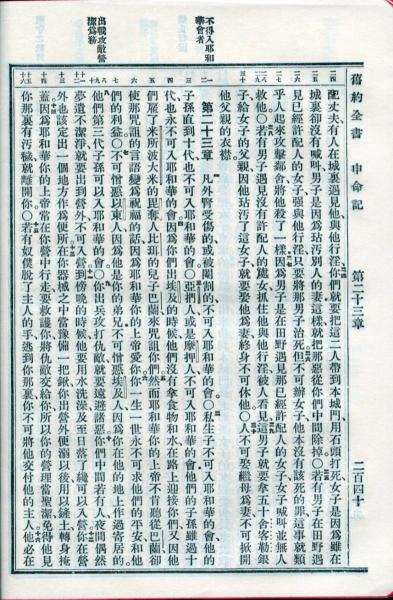 舊約全書 申命記 第二十三章 二百四十
配丈夫有人在城裏遇見他與他行淫你們就要把這二人帶到本城門用石頭打死女子是因爲雖在
城裏卻沒有喊叫男子是因爲玷污別人的妻這樣就把那惡從你們中間除掉〇若有男子在田野遇
見已經許配人的女子強與他行淫只要將那男子治死但不可辦女子他本沒有該死的罪這事就類
乎人起來攻擊鄰舍將他殺了一樣因爲男子是在田野遇見那已經許配人的女子女子喊叫並無人
救他〇若有男子遇見沒有許配人的處女抓住他與他行淫被人看見這男子就要拿五十舍客勒銀
子給女子的父親因他玷污了這女子就要娶他爲妻終身不可休他〇人不可娶繼母爲妻不可掀開
他父親的衣襟
不得入耶和
華會者
第二十三章 凡外腎受傷的或被閹割的不可入耶和華的會〇私生子不可入耶和華的會他的
子孫直到十代也不可入耶和華的會〇亞捫人或是摩押人不可入耶和華的會他們的子孫雖過十
代也永不可入耶和華的會因爲你們出埃及的時候他們沒有拿食物和水在路上迎接你們又因他
們雇了米所波大米的毘奪人比珥的兒子巴蘭來咒詛你們然而耶和華你的上帝不肯聽從巴蘭卻
使那咒詛的言語變爲祝福的話因爲耶和華你的上帝愛你你一生一世永不可求他們的平安和他
們的利益〇不可憎惡以東人因爲他是你的弟兄不可憎惡埃及人因爲你在他的地上作過寄居的
出戰攻敵營
潔爲務
他們第三代子孫可以入耶和華的會〇你出兵攻打仇敵就要遠避諸惡你們中間若有人夜間偶然
夢遺不潔淨就要出到營外不可入營到傍晚的時候他要用水洗澡及至日落了纔可以入營你在營
外也該定出一個地方作爲便所在你器械之中當豫備一把鍬你出營外便溺以後用以鏟土轉身掩
蓋因爲耶和華你的上帝常在你營中行走要救護你將仇敵交給你所以你的營理當聖潔免得他見
你那裏有污穢就離開你〇若有奴僕脫了主人的手逃到你那裏你不可將他交付他的主人他必在